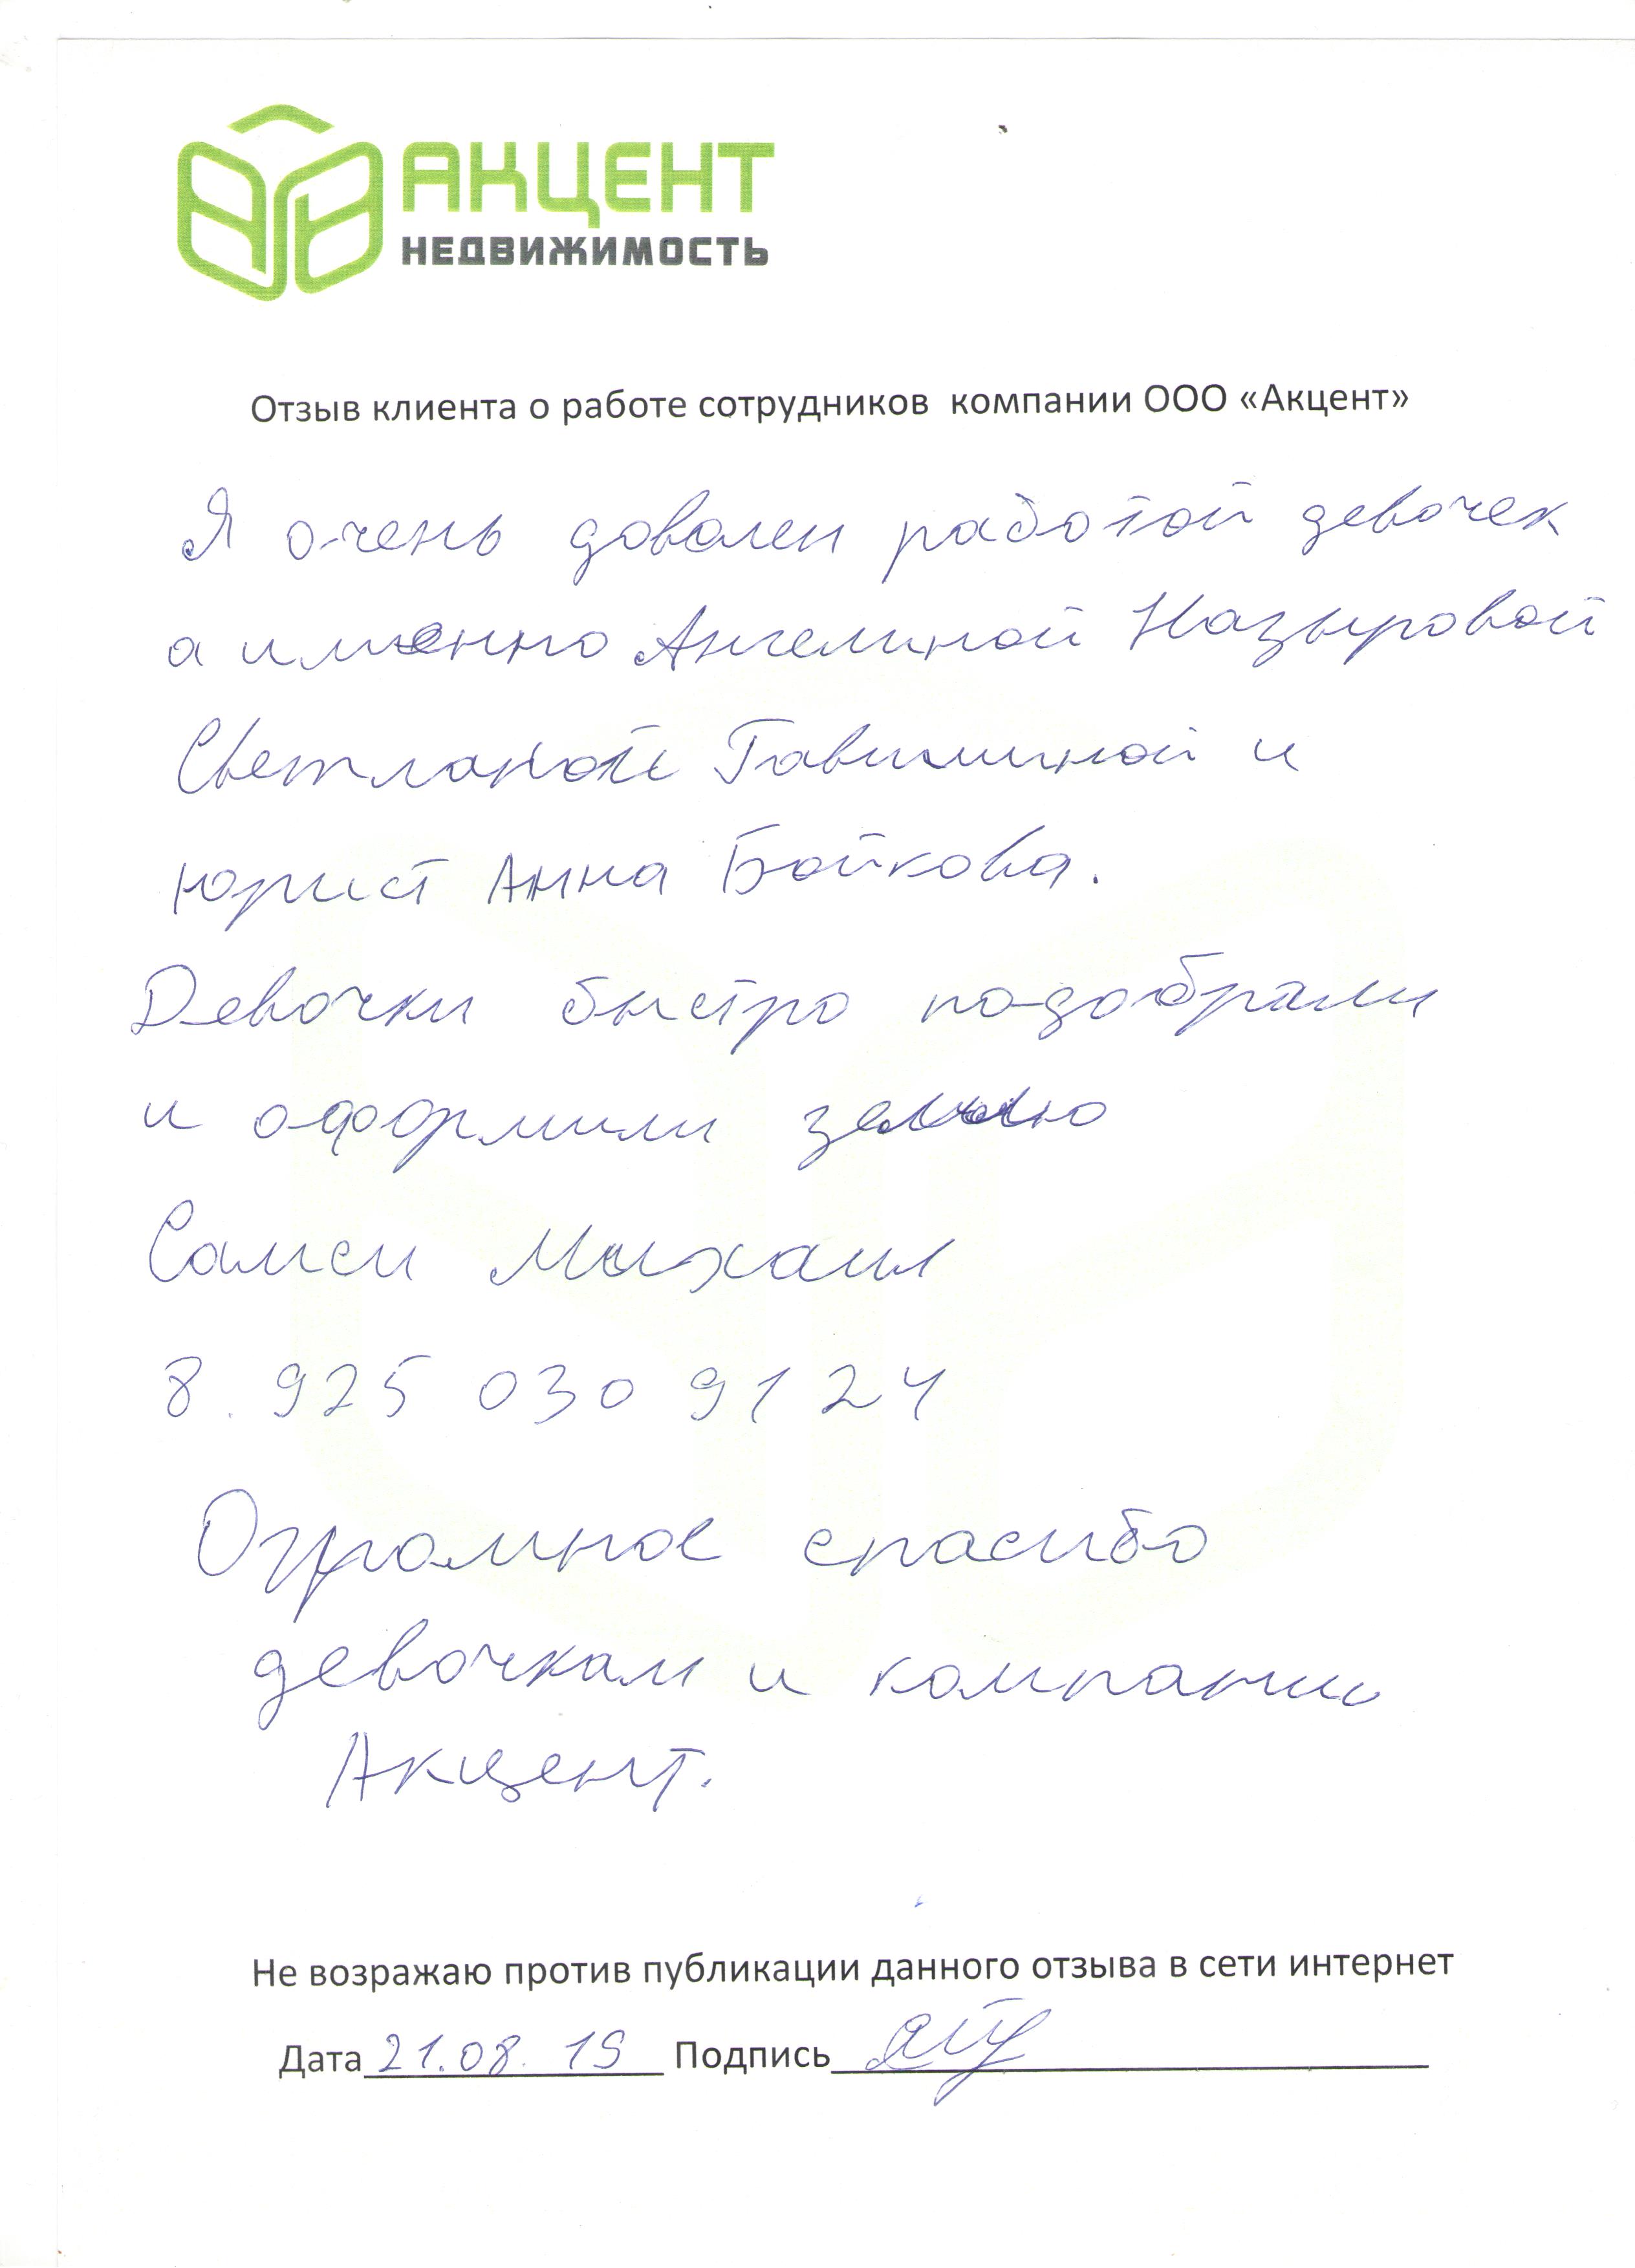 АКЦЕНТ
НЕДВИЖИМОСТЬ
Отзыв клиента о работе сотрудников компании ООО «Акцент»
Я очень доволен работой девочек
а именно Ангелиной Назыровой
Светланой и
юрист Анна Бойкова.
Девочки быстро подобрали
и оформили землю
Михаил
8. 925 030 91 24
Огромное спасибо
девочкам и компании
Акцент.
Не возражаю против публикации данного отзыва в сети интернет
Дата 21.08.19 Подпись